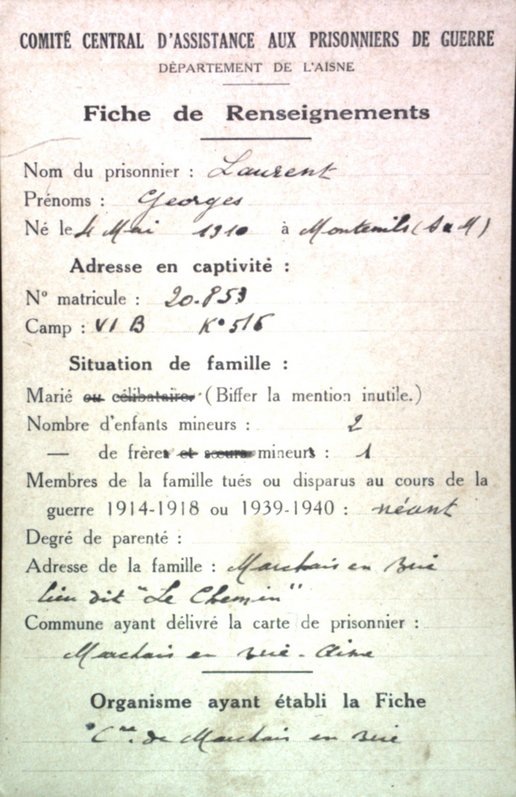 COMITÉ CENTRAL D'ASSISTANCE AUX PRISONNIERS DE GUERRE
DÉPARTEMENT DE L'AISNE
Fiche de Renseignements
Nom du prisonnier : Laurent
Prénoms : Georges
Né le 4 Mai 1910 à Montenils (S & M)
Adresse en captivité :
N° matricule : 20.853
Camp : VI B K° 516
Situation de famille :
Marié ou célibataire. (Biffer la mention inutile.)
Nombre d'enfants mineurs : 2
— de frères et sœurs mineurs : 1
Membres de la famille tués ou disparus au cours de la
guerre 1914-1918 ou 1939-1940 : néant
Degré de parenté :
Adresse de la famille : Marchais en Brie
lieu dit "Le Chemin"
Commune ayant délivré la carte de prisonnier :
Marchais en Brie - Aisne
Organisme ayant établi la Fiche
Cne de Marchais en Brie